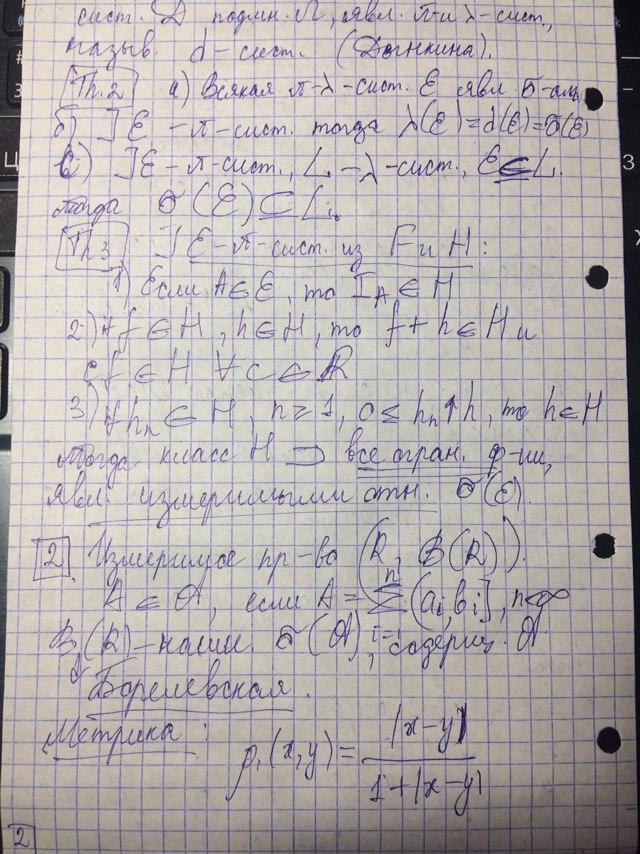 сист. D подмн. Ω, явл. π- и λ-сист.,
назыв. d-сист. (Дынкина).
Th.2 а) Всякая π-λ-сист. E явл. σ-алг.
б) ] E - π-сист. тогда λ(E)=d(E)=σ(E)
в) ] E - π-сист., L - λ-сист., E ⊆ L.
тогда σ(E) ⊆ L.
Th.3 ] E-π-сист. из F и H:
1) Если A∈E, то I_A ∈ H
2) ∀f∈H, h∈H, то f+h∈H и
cf∈H ∀c∈R
3) ∀h_n∈H, n≥1, 0≤h_n↑h, то h∈H
Тогда класс H ⊃ все огран. ф-ии,
явл. измеримыми отн. σ(E).
2 Измеримое пр-во (R, B(R)).
A∈A, если A = ∑_{i=1}^{n} (a_i, b_i], n<∞
B(R) - наим. σ(A), содерж. A
Борелевская.
Метрика: ρ_1(x,y) = |x-y| / 1+|x-y|
2